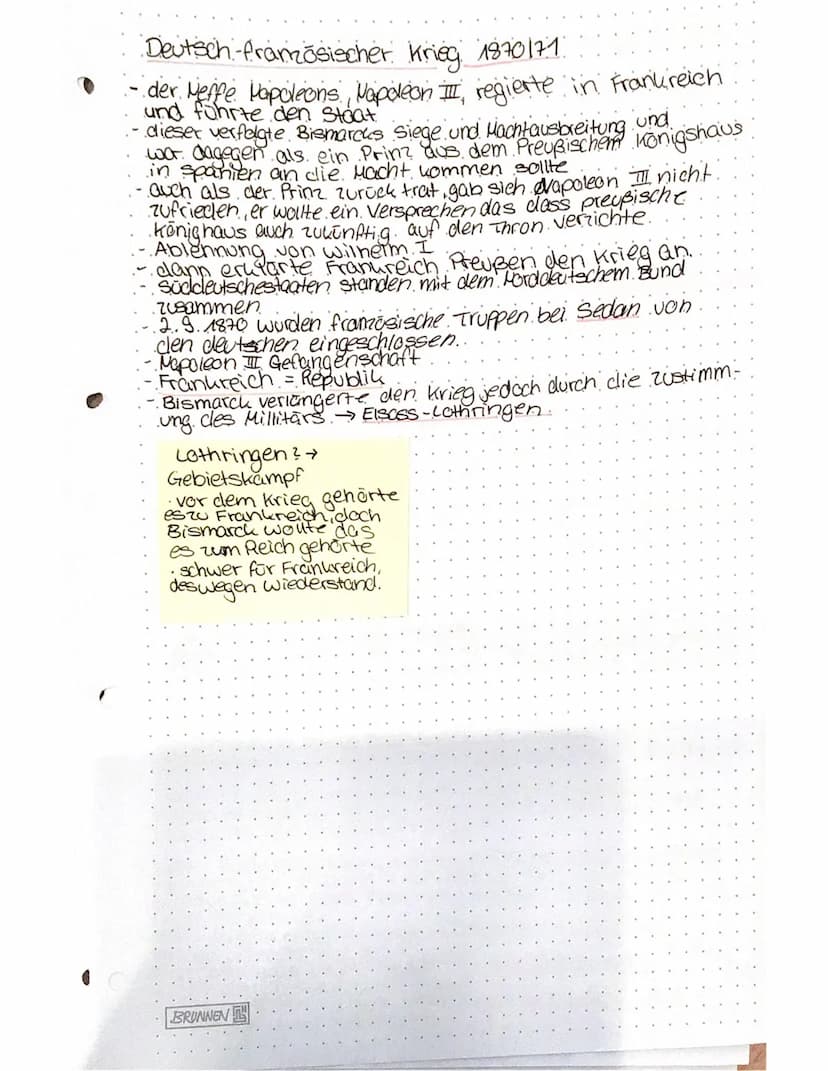 Deutsch-französischer Krieg 1870/71
- der Neffe Napoleons, Napoleon III, regierte in Frankreich
und führte den Staat
- dieser verfolgte Bismarcks Siege und Machtausbreitung und
war dagegen als ein Prinz aus dem Preußischem Königshaus
in Spanien an die Macht kommen sollte
- auch als der Prinz zurück trat, gab sich Napoleon III nicht
zufrieden, er wollte ein Versprechen das dass preußische
Könighaus auch zukünftig auf den Thron verzichte
- Ablehnung von Wilhelm I
- dann erklärte Frankreich Preußen den Krieg an.
- Süddeutschestaaten standen mit dem Norddeutschem Bund
zusammen
- 2.9.1870 wurden französische Truppen bei Sedan von
den deutschen eingeschlossen.
- Napoleon III Gefangenschaft
- Frankreich = Republik
- Bismarck verlängerte den Krieg jedoch durch die zustimm-
ung des Millitärs → Elsass-Lothringen
Lothringen? →
Gebietskampf
· vor dem Krieg gehörte
es zu Frankreich, doch
Bismarck wollte das
es zum Reich gehörte
· schwer für Frankreich,
deswegen Wiederstand.
BRUNNEN